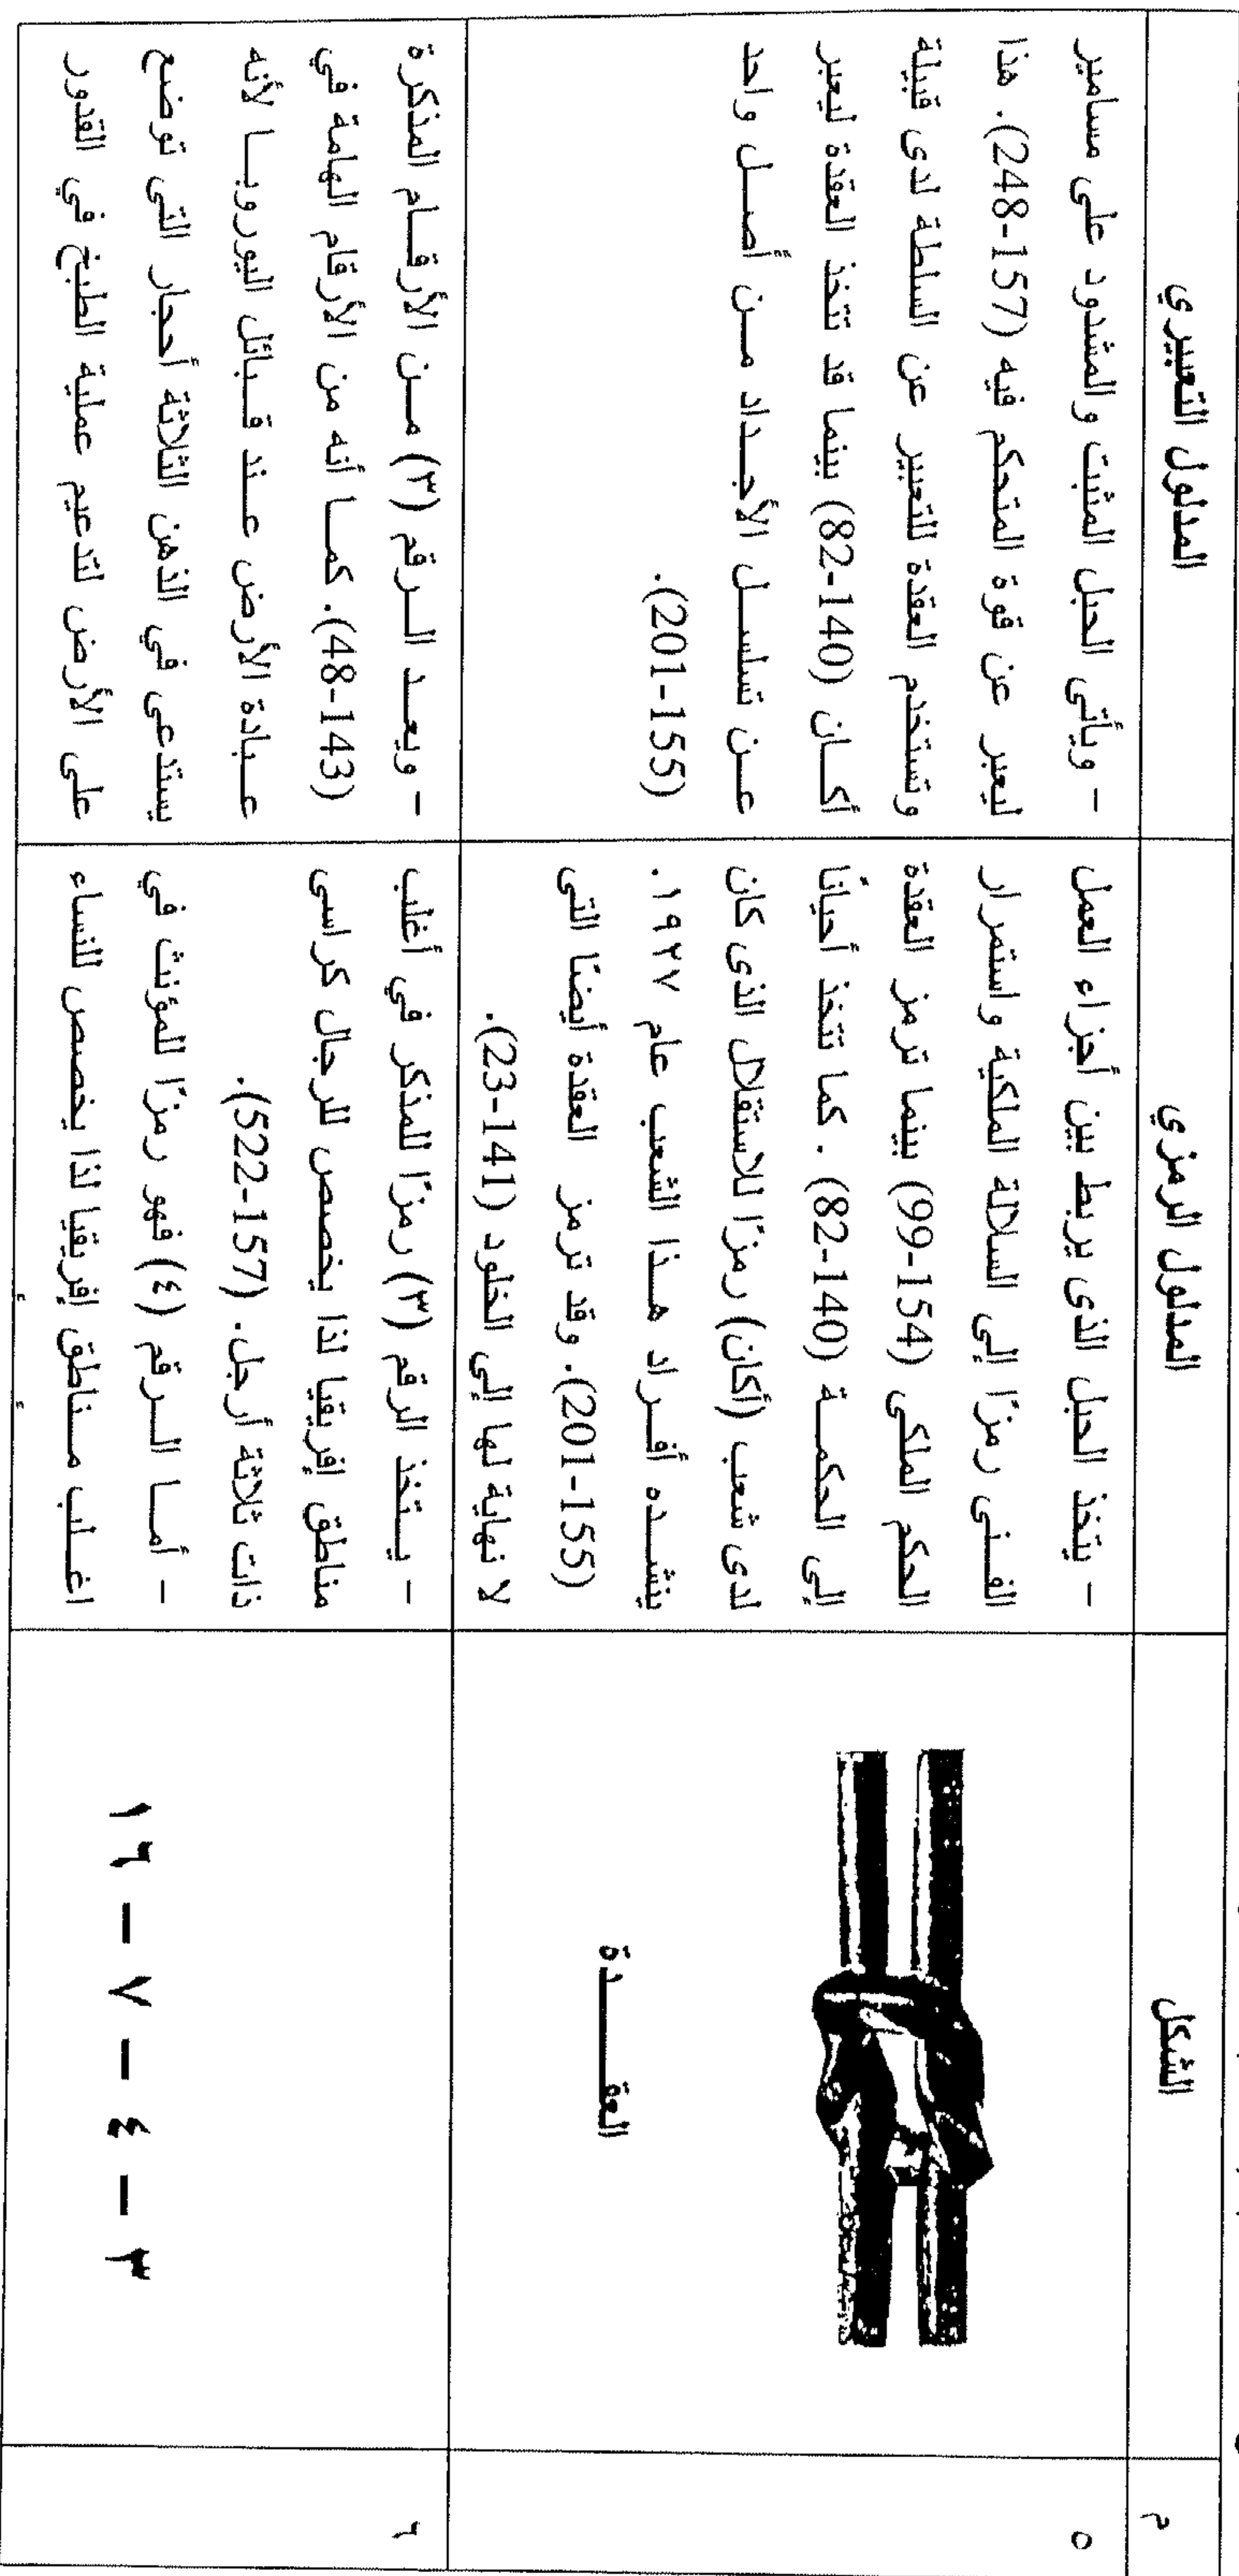 م
الشكل
المدلول الرمزي
المدلول التعبيري
٥
العقـــــدة
- يتخذ الحبل الذى يربط بين أجزاء العمل
الفــنى رمزًا إلى السلالة الملكية واستمرار
الحكم الملكى (154-99) بينما ترمز العقدة
إلى الحكمــة (140-82) . كما تتخذ أحيانًا
لدى شعب (أكان) رمزًا للاستقلال الذى كان
ينشــده أفــراد هــذا الشعب عام ١٩٢٧.
(155-201). وقد ترمز العقدة أيضًا التى
لا نهاية لها إلى الخلود (141-23).
- ويأتى الحبل المثبت والمشدود على مسامير
ليعبر عن قوة المتحكم فيه (157-248). هذا
وتستخدم العقدة للتعبير عن السلطة لدى قبيلة
أكــان (140-82) بينما قد تتخذ العقدة ليعبر
عــن تسلســل الأجــداد مــن أصــل واحد
(155-201).
٦
٣ – ٤ – ٧ – ١٦
- يــتخذ الرقم (٣) رمزًا للمذكر في أغلب
مناطق إفريقيا لذا يخصص للرجال كراسى
ذات ثلاثة أرجل. (157-522).
- أمــا الــرقم (٤) فهو رمزًا للمؤنث في
اغــلب مــناطق إفريقيا لذا يخصص للنساء
- ويعــد الــرقم (٣) مــن الأرقــام المذكرة
(143-48). كمــا أنه من الأرقام الهامة في
عــبادة الأرض عــند قــبائل اليوروبــا لأنه
يستدعى في الذهن الثلاثة أحجار التى توضع
على الأرض لتدعيم عملية الطبخ في القدور